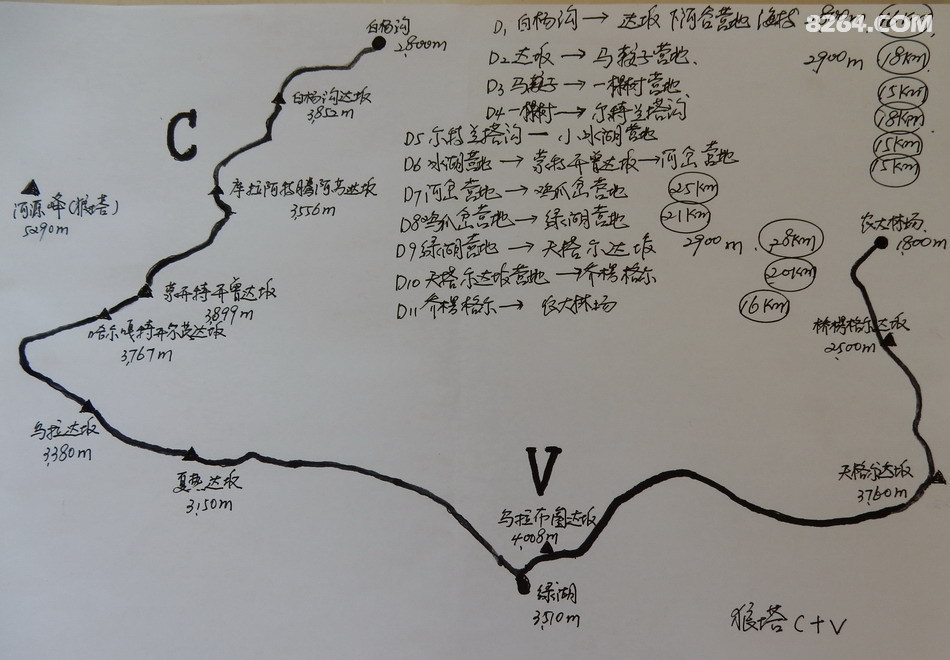 8264.COM
D1 白杨沟 → 达坂下阿合营地 海拔
D2 达坂 → 马粒子营地、 2900m 18Km
D3 马粒子 → 一棵树营地、 15Km
D4 一棵树 → 尔特兰塔沟 18Km
D5 尔特兰塔沟 — 小冰湖营地 15Km
D6 冰湖营地 → 蒙特开曾达坂 → 河岔营地 15Km
D7 河岔营地 → 鸡爪岔营地 25Km
D8 鸡爪岔营地 → 绿湖营地 21Km
D9 绿湖营地 → 天格尔达坂 2900m. 28Km
D10 天格尔达坂营地 → 乔楞格尔 20Km
D11 乔楞格尔 → 农大林场 16Km
白杨沟
2,800m
白杨沟达坂
3,852m
C
库拉阿特腾阿马达坂
3556m
河源峰(狼塔)
5290m
蒙开特开曾达坂
3,899m
哈尔嘎特开尔达坂
3,767m
乌拉达坂
3,380m
夏热达坂
3,150m
V
乌拉布图达坂
4,008m
绿湖
3,510m
农大林场
1,800m
乔楞格尔达坂
2,500m
天格尔达坂
3,760m
狼塔 C+V